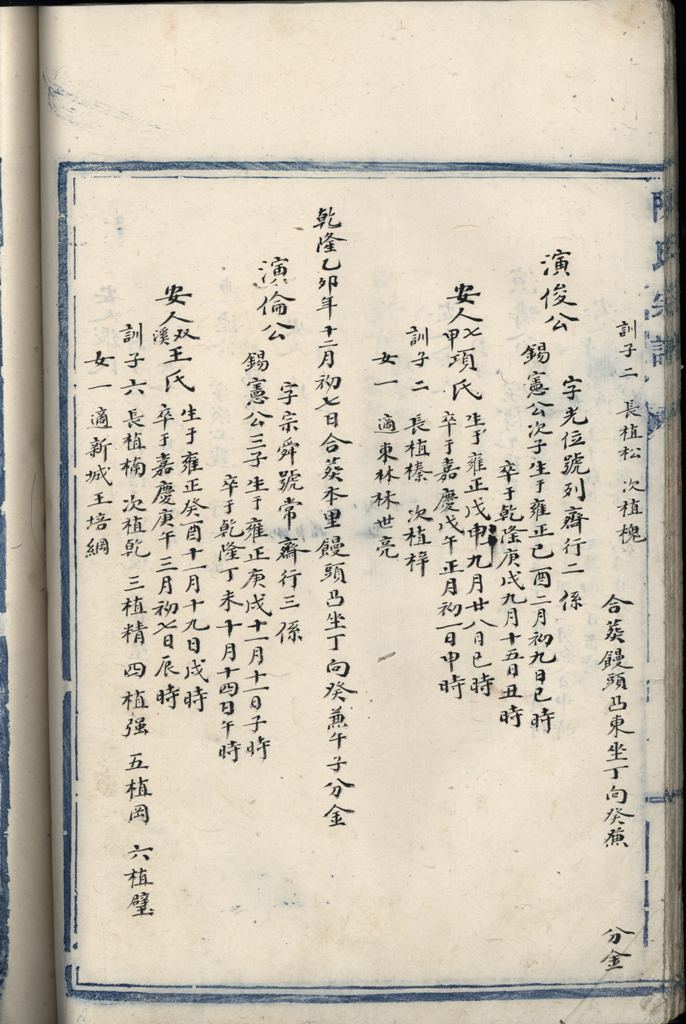 訓子二 長植松 次植槐
合葵饅頭凸東坐丁向癸蕉 分金
演俊公 字光位號列齋行二係
錫憲公次子生于雍正己酉二月初九日巳時
卒于乾隆庚戌九月十五日丑時
安人七甲項氏 生于雍正戊申九月廿八日巳時
卒于嘉慶戊午正月初一日申時
訓子二 長植榛 次植梓
女一 適東林林世亮
乾隆乙卯年十二月初七日合葵本里饅頭凸坐丁向癸蕉午子分金
演倫公 字宗舜號常齋行三係
錫憲公三子生于雍正庚戌十一月十一日子時
卒于乾隆丁未十月十四日午時
安人双溪王氏 生于雍正癸酉十一月十九日戌時
卒于嘉慶庚午三月初七日辰時
訓子六 長植楠 次植乾 三植精 四植强 五植岡 六植璧
女一 適新城王培綱